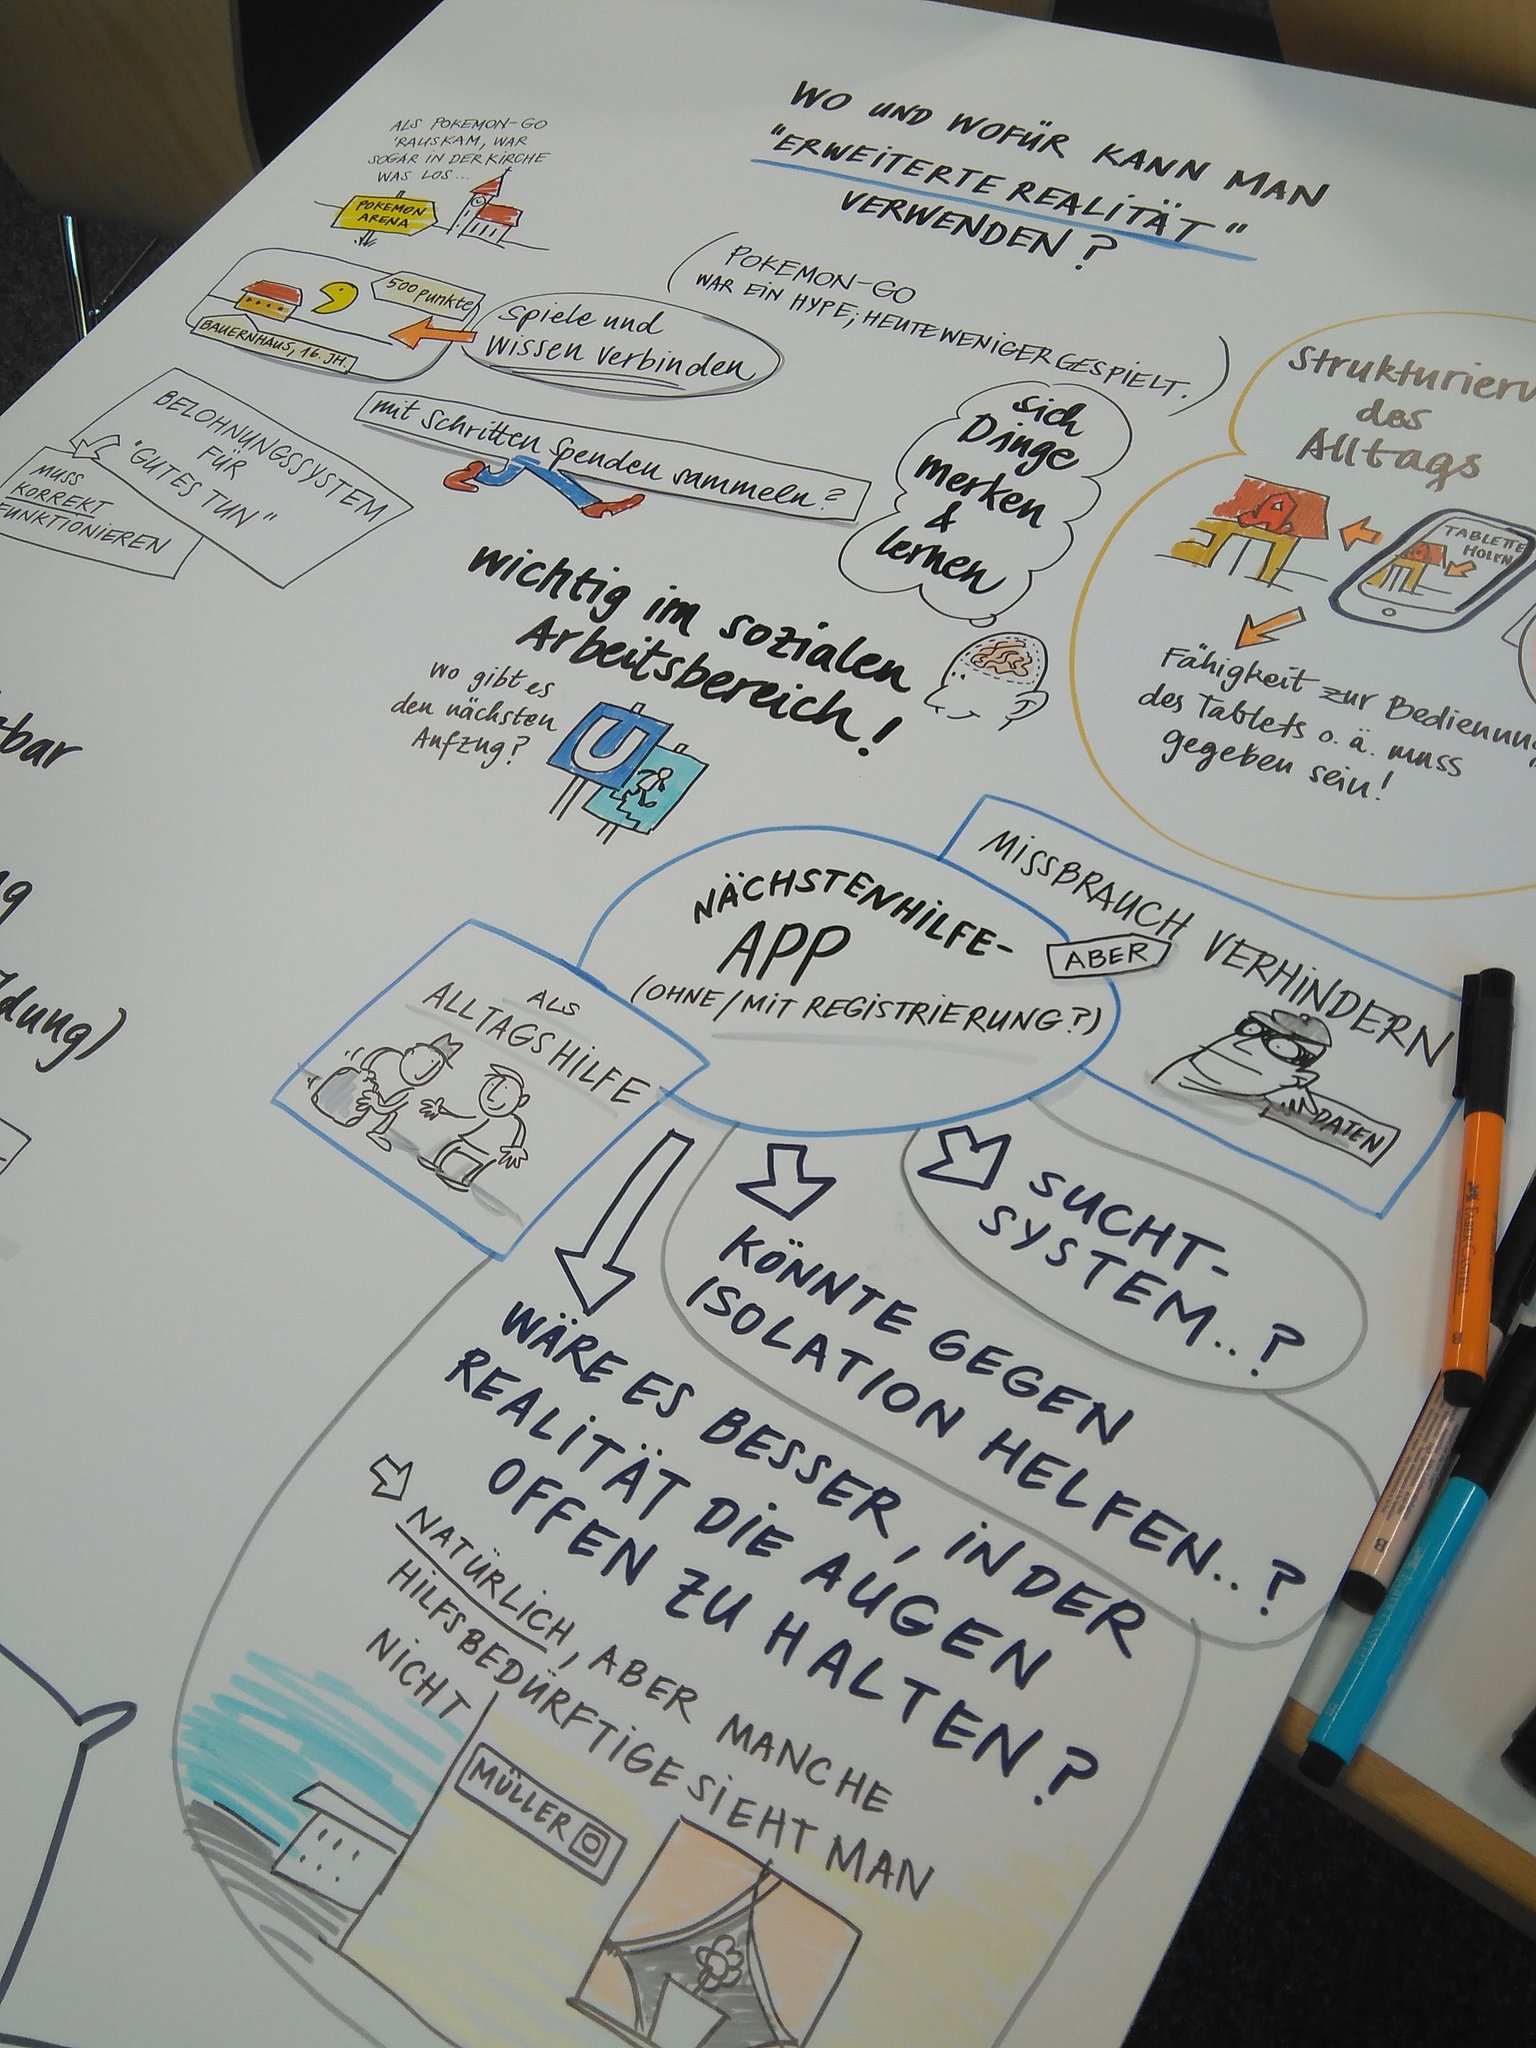 WO UND WOFÜR KANN MAN
"ERWEITERTE REALITÄT"
VERWENDEN?
ALS POKEMON-GO
'RAUSKAM, WAR
SOGAR IN DER KIRCHE
WAS LOS...
POKEMON
ARENA
(POKEMON-GO
WAR EIN HYPE; HEUTE WENIGER GESPIELT.)
500 punkte
BAUERNHAUS, 16. JH.
Spiele und
Wissen verbinden
BELOHNUNGSSYSTEM
FÜR
"GUTES TUN"
MUSS
KORREKT
FUNKTIONIEREN
mit Schritten spenden sammeln?
sich
Dinge
merken
&
lernen
Strukturieru
des
Alltags
TABLETTE
HOLEN
Fähigkeit zur Bedienung
des Tablets o.ä. muss
gegeben sein!
wichtig im sozialen
Arbeitsbereich!
Wo gibt es
den nächsten
Aufzug?
U
tbar
g
ldung)
NÄCHSTENHILFE-
APP
(OHNE/MIT REGISTRIERUNG?)
ABER
MISSBRAUCH VERHINDERN
DATEN
ALS
ALLTAGSHILFE
SUCHT-
SYSTEM..?
KÖNNTE GEGEN
ISOLATION HELFEN..?
WÄRE ES BESSER, IN DER
REALITÄT DIE AUGEN
OFFEN ZU HALTEN?
NATÜRLICH, ABER MANCHE
HILFSBEDÜRFTIGE SIEHT MAN
NICHT
MÜLLER